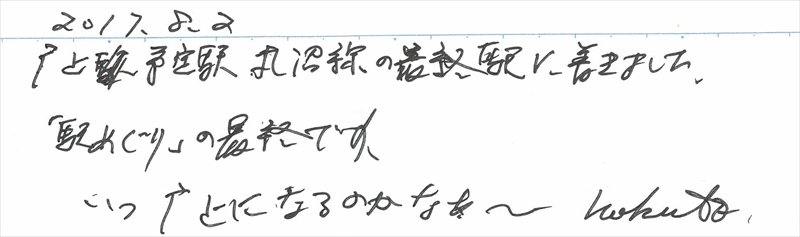 2017.8.2
廃止予定駅 札沼線の最終駅に着きました。
「駅めぐり」の最終です。
いつ廃止になるのかなぁ〜